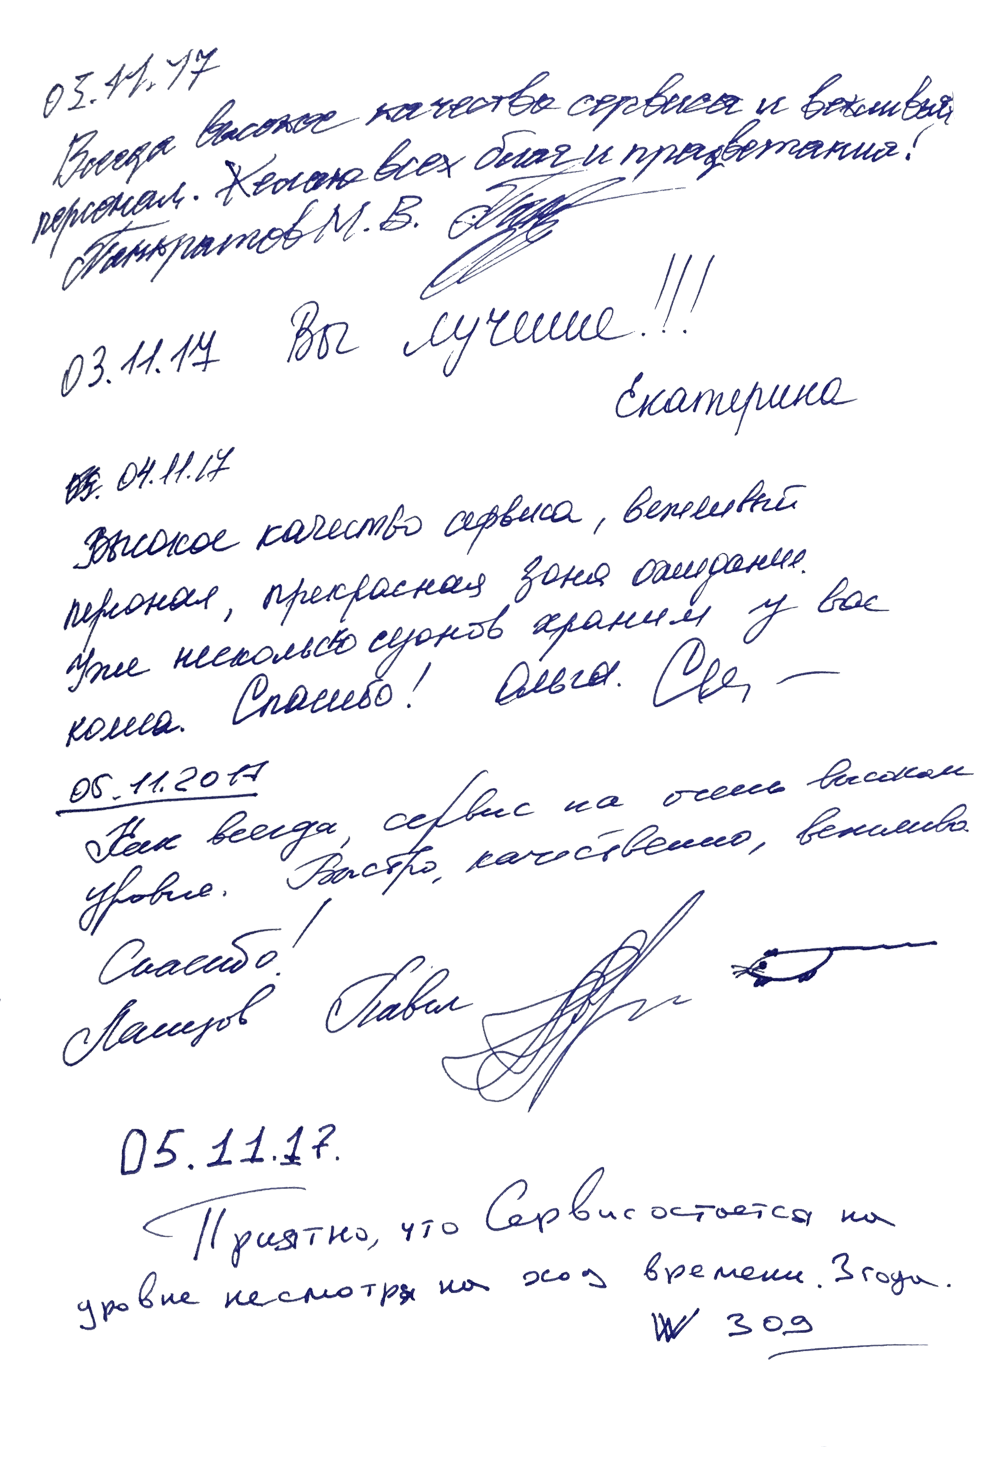 03.11.17
Всегда высокое качество сервиса и вежливый
персонал. Желаю всех благ и процветания!
Панкратов М. В.
03.11.17 Вы лучшие!!!
Екатерина
04.11.17
Высокое качество сервиса, вежливый
персонал, прекрасная зона ожидание.
Уже несколько сезонов храним у вас
колеса. Спасибо! Ольга.
05.11.2017
Как всегда, сервис на очень высоком
уровне. Быстро, качественно, вежливо.
Спасибо!
Павел
05.11.17.
Приятно, что Сервис остается на
уровне несмотря на ход времени. 3 года.
W 309